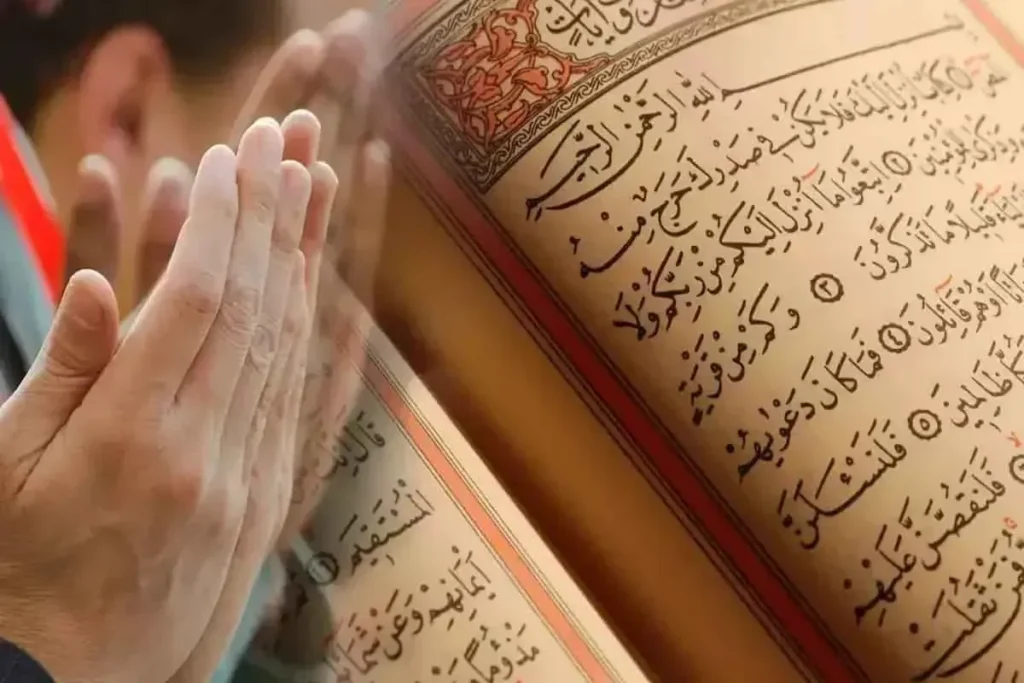 بِسْمِ اللّٰهِ الرَّحْمٰنِ الرَّحِيمِ
كِتَابٌ اُنْزِلَ اِلَيْكَ فَلَا يَكُنْ فِى صَدْرِكَ حَرَجٌ مِنْهُ
وَذِكْرٰى لِلْمُؤْمِنِينَ ٢ اِتَّبِعُوا مَٓا اُنْزِلَ اِلَيْكُمْ مِنْ رَبِّكُمْ وَلَا
قَلِيلًا مَا تَذَكَّرُونَ ٣ وَكَمْ مِنْ قَرْيَةٍ
اَوْ هُمْ قَٓائِلُونَ ٤ فَمَا كَانَ دَعْوٰيهُمْ
ظَالِمِينَ ٥ فَلَنَسْـَٔلَنَّ
فَلَنَقُصَّنَّ عَلَيْهِمْ
فَمَنْ ثَقُلَتْ
قَالَ
الْمُسْتَقِيمَ
اَيْمَانِهِمْ وَعَنْ
مَذْؤُمًا